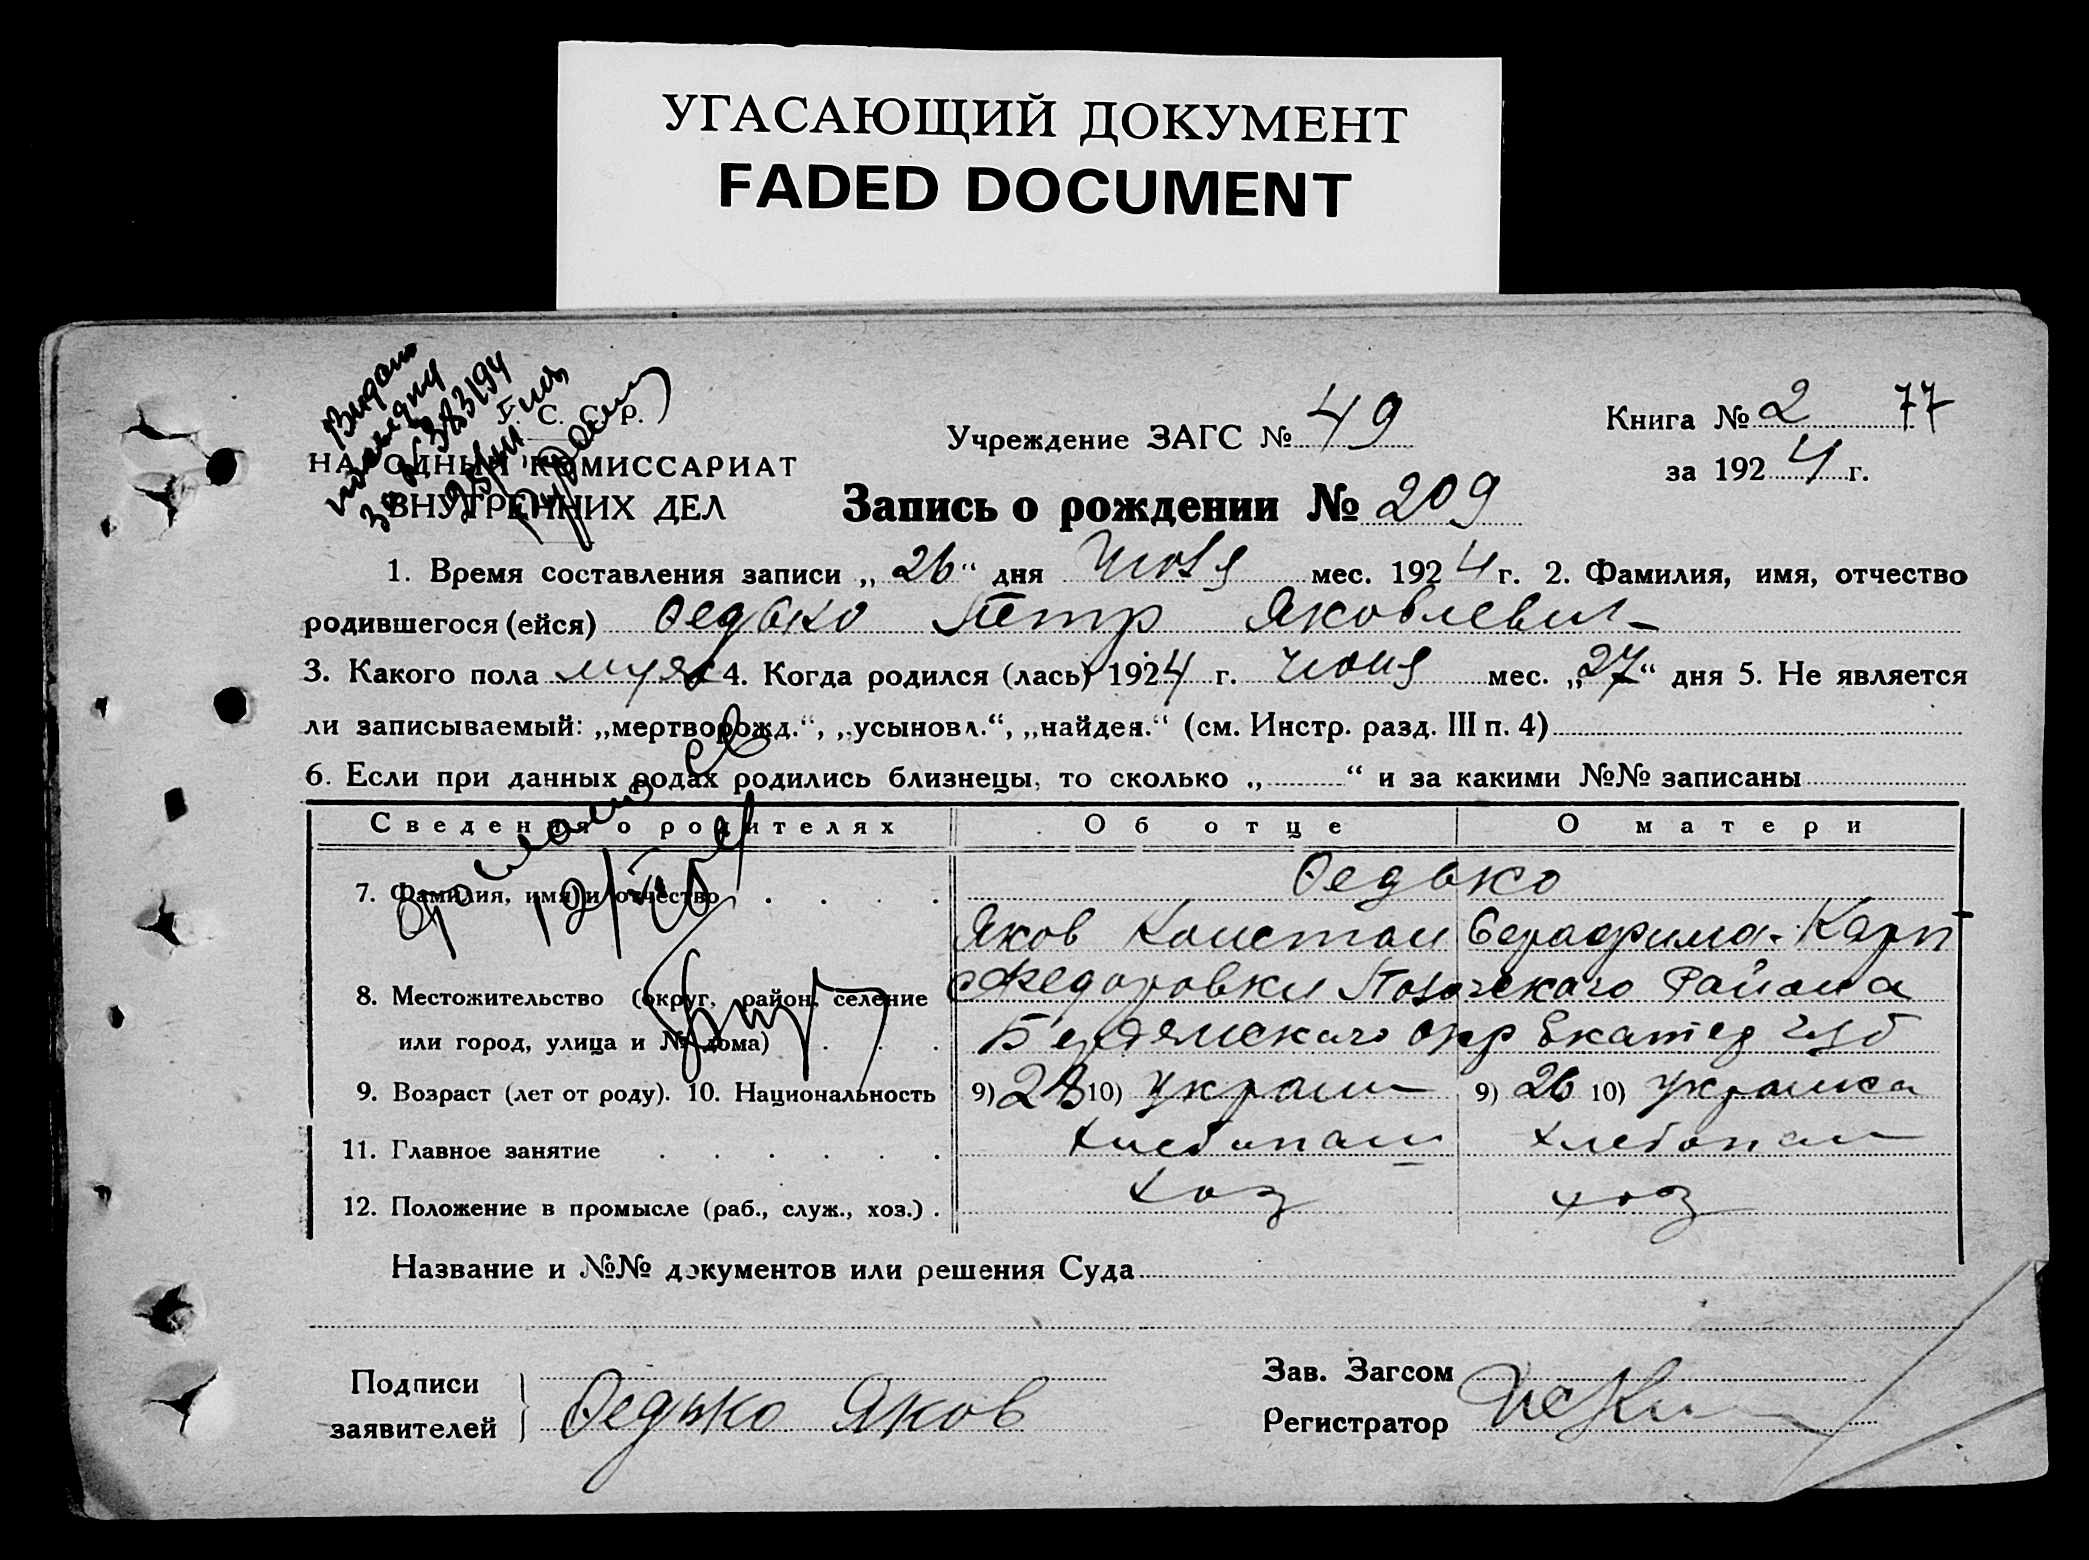 УГАСАЮЩИЙ ДОКУМЕНТ
FADED DOCUMENT
С. С. Р.
НАРОДНЫЙ КОМИССАРИАТ
ВНУТРЕННИХ ДЕЛ
№ 383194
Учреждение ЗАГС № 49
Книга № 2 77
за 1924 г.
Запись о рождении № 209
1. Время составления записи „26“ дня Июля мес. 1924 г. 2. Фамилия, имя, отчество
родившегося (ейся) Ѳедько Петр Яковлевич
3. Какого пола муж 4. Когда родился (лась) 1924 г. июня мес. „27“ дня 5. Не является
ли записываемый: „мертворожд.“, „усыновл.“, „найден.“ (см. Инстр. разд. III п. 4)
6. Если при данных родах родились близнецы, то сколько „ “ и за какими №№ записаны
Сведения о родителях Об отце О матери
7. Фамилия, имя и отчество Ѳедько
Яков Констан Серафима Карп
8. Местожительство (округ, район, селение с Федоровки Района
или город, улица и № дома) Бердянскаго окр Екатер губ
9. Возраст (лет от роду). 10. Национальность 9) 28 10) украин 9) 26 10) украинка
11. Главное занятие Хлебопаш Хлебопаш
12. Положение в промысле (раб., служ., хоз.) хоз хоз
Название и №№ документов или решения Суда
Подписи
заявителей Ѳедько Яков
Зав. Загсом
Регистратор